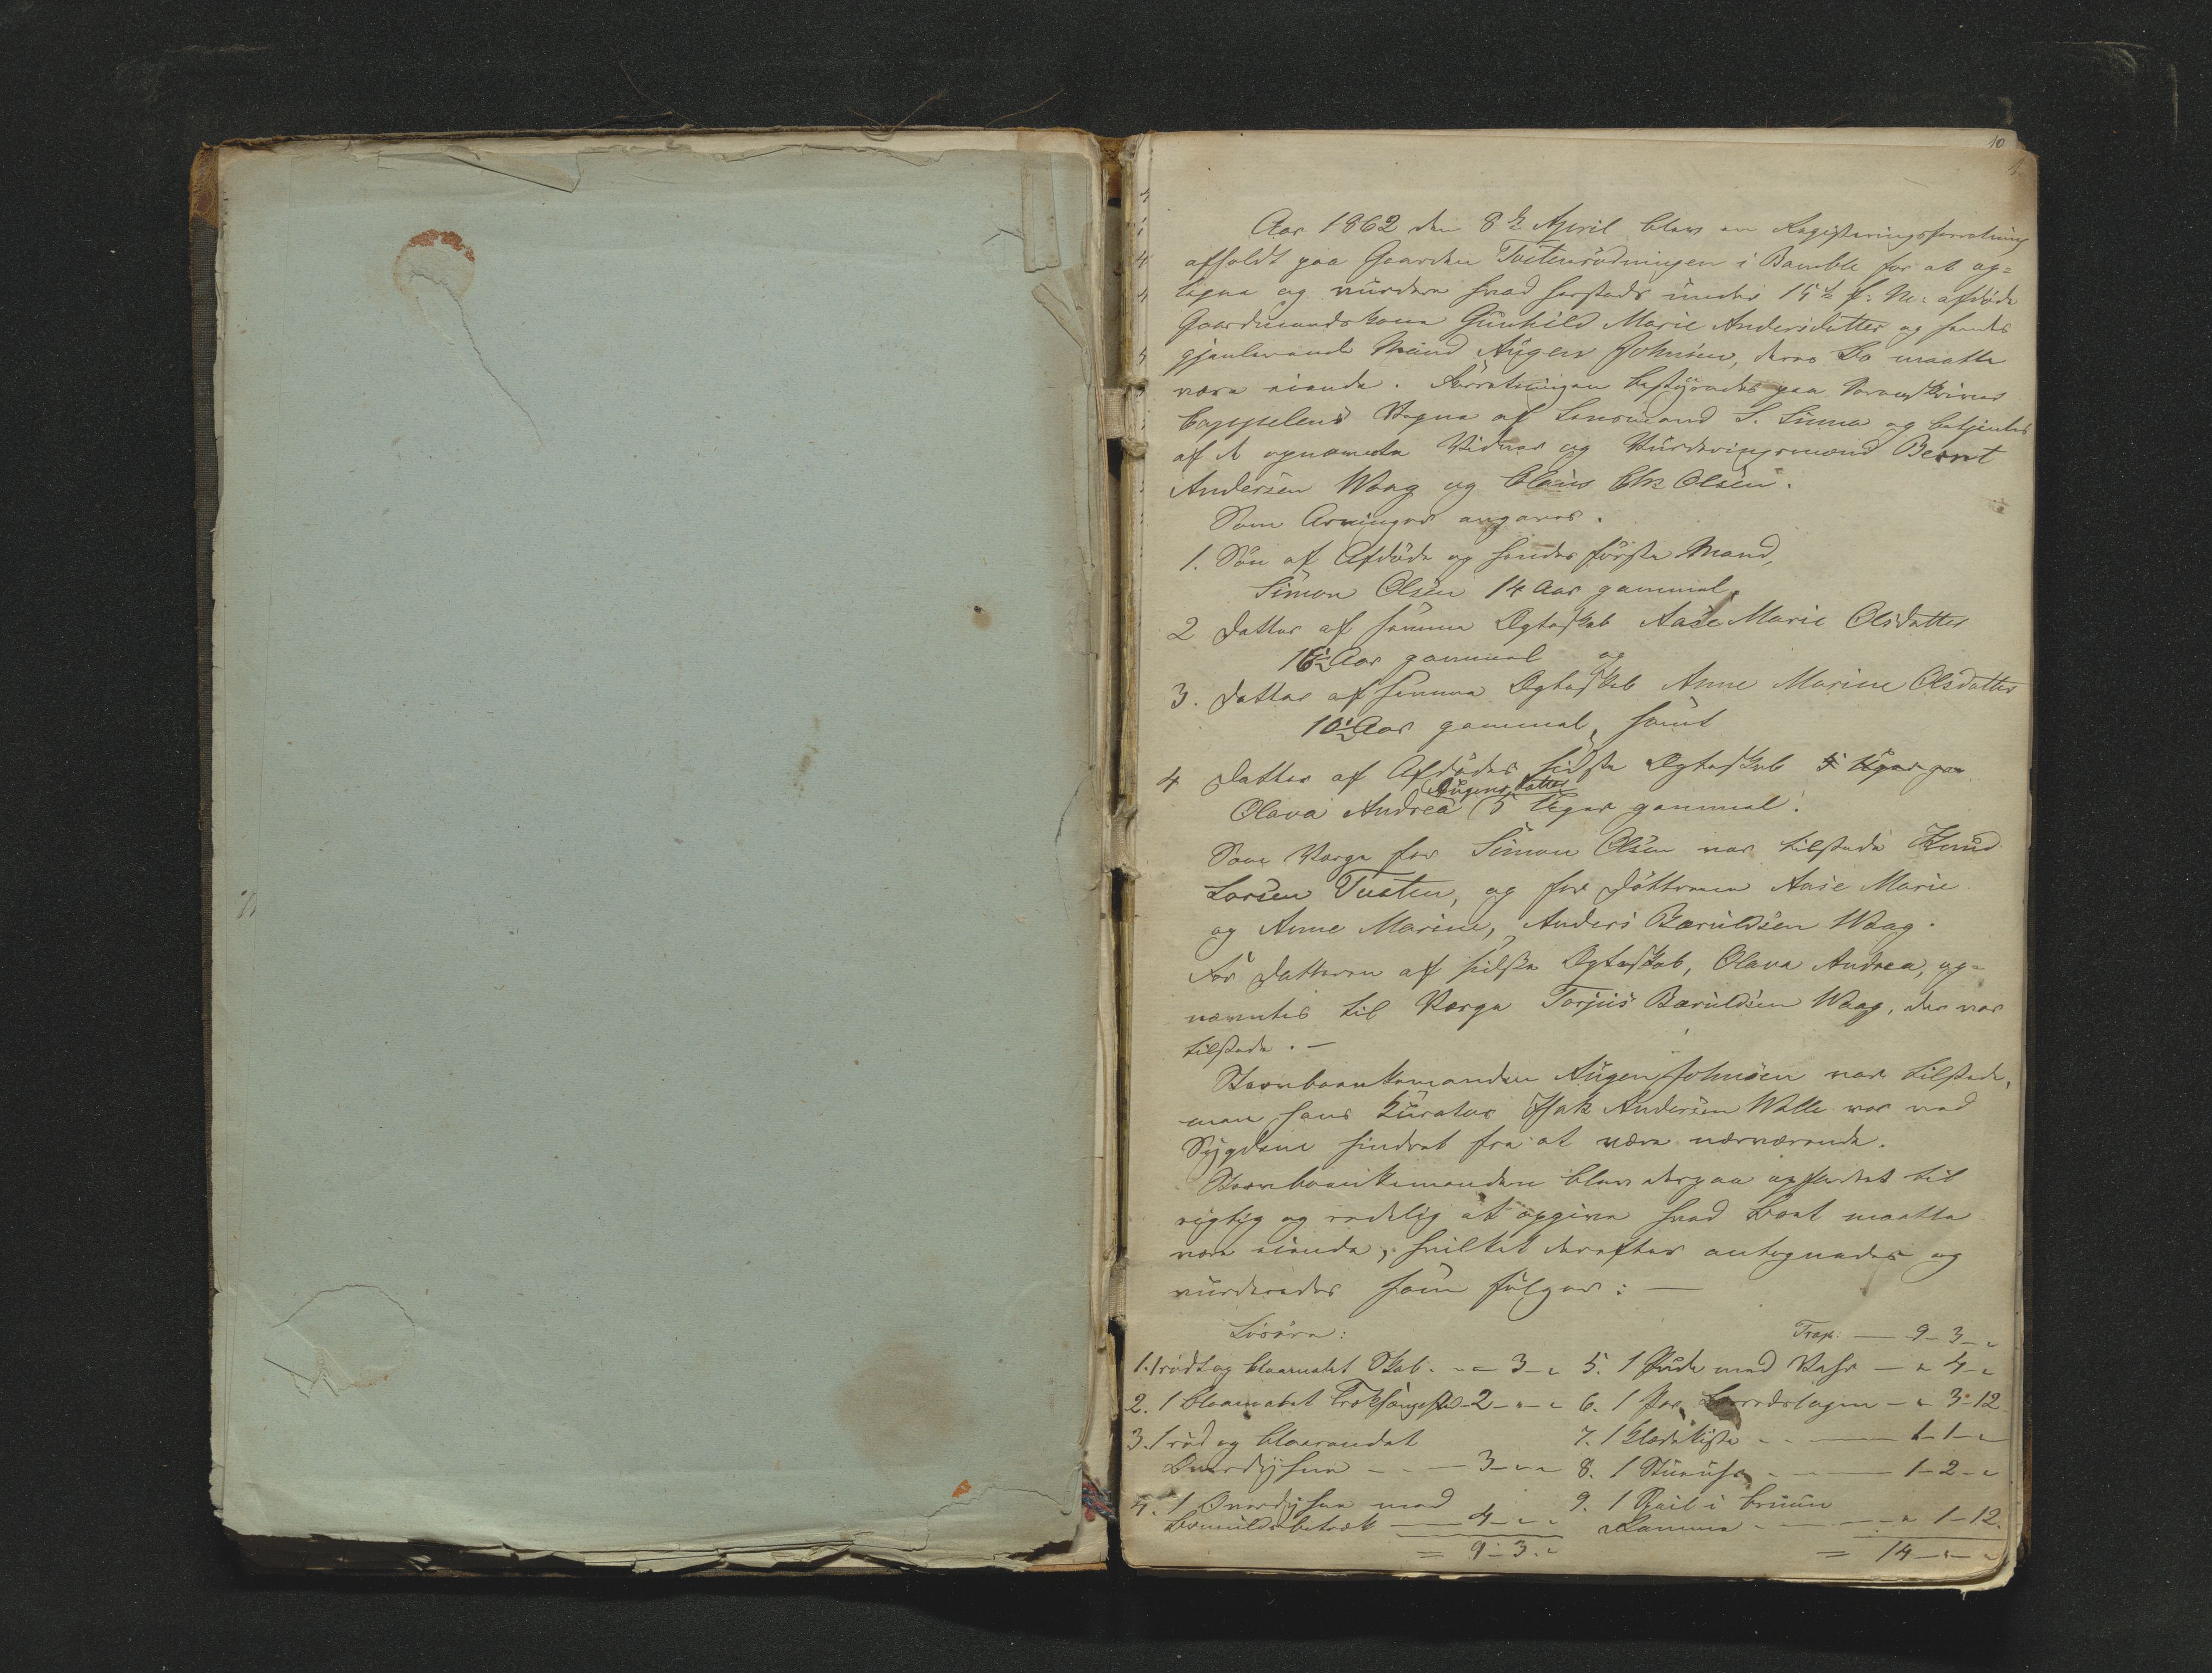 10
Aar 1862 den 8de April blev en Registreringsforretning
afholdt paa Gaarden Tveitenrødningen i Bamble for at op=
tegne og vurdere hvad herstads under 15de f: M: afdøde
Gaardmandskone Gunhild Marie Andersdatter og hendes
gjenlevende Mand Augen Johnsen, deres Bo maatte
være eiende. Forretningen bestyredes paa Sorenskriver
Cappelens Vegne af Lensmand S. Linna og betjentes
af de opnævnte Vidner og Vurderingsmænd Bernt
Andersen Waag og Claus Chr Olsen.
Som Arvinger angaves.
1. Søn af Afdøde og hendes første Mand,
Simon Olsen 14 Aar gammel,
2 Datter af samme Ægteskab Aase Marie Olsdatter
16½ Aar gammel og
3. Datter af samme Ægteskab Anne Marine Olsdatter
10½ Aar gammel, samt
4 Datter af Afdødes sidste Ægteskab 5 Uger ga
Augensdatter
Olava Andrea 5 Uger gammel.
Som Værge for Simon Olsen var tilstede Knud
Larsen Tveten, og for Døttrene Aase Marie
og Anne Marine, Anders Bæruldsen Waag.
For Datteren af sidste Ægteskab, Olava Andrea, op=
nævntes til Værge Torjus Bæruldsen Waag, der var
tilstede. —
Stervboenkemanden Augen Johnsen var tilstede,
men hans Kurator Isak Andersen Valle var ved
Sygdom hindret fra at være nærværende.
Stervboenkemanden blev derpaa opfordret til
rigtig og redelig at opgive hvad Boet maatte
være eiende, hvilket derefter antegnedes og
vurderedes som følger: —
Løsøre:
1. 1 rødt og blaamalet Skab - " - 3 - "
2. 1 blaamalet Træksengested - 2 - " - "
3. 1 rød og blaarandet
Overdyhne - - - 3 - " - "
4. 1 Overdyhne med
Bomuldsbetræk — 4 - " - "
= 9 - 3 - "
Trsp: — 9 - 3 - "
5. 1 Pude med Vahr — " 4 - "
6. 1 Par Lærredslagen - " 3 - 12
7. 1 Klædekiste - - — 1 - 1 - "
8. 1 Stueuhr - - — 1 - 2 - "
9. 1 Speil i bruun
Ramme - — " 1 - 12.
= 14 - " - "